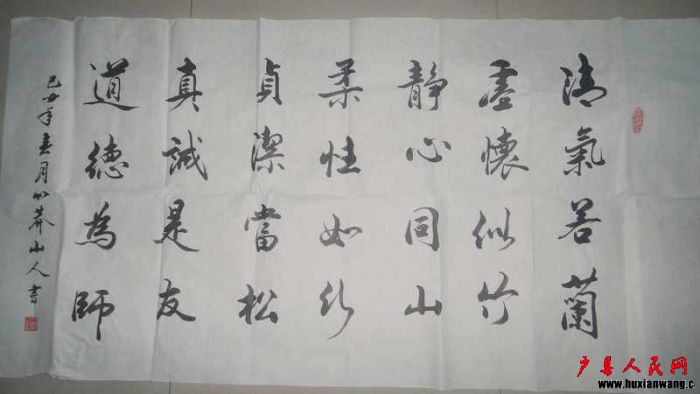 清氣若蘭
虛懷似竹
靜心同山
柔性如水
貞潔當松
真誠是友
道德為師
己丑年春月莽山人書
户县人民网
www.huxianwang.c